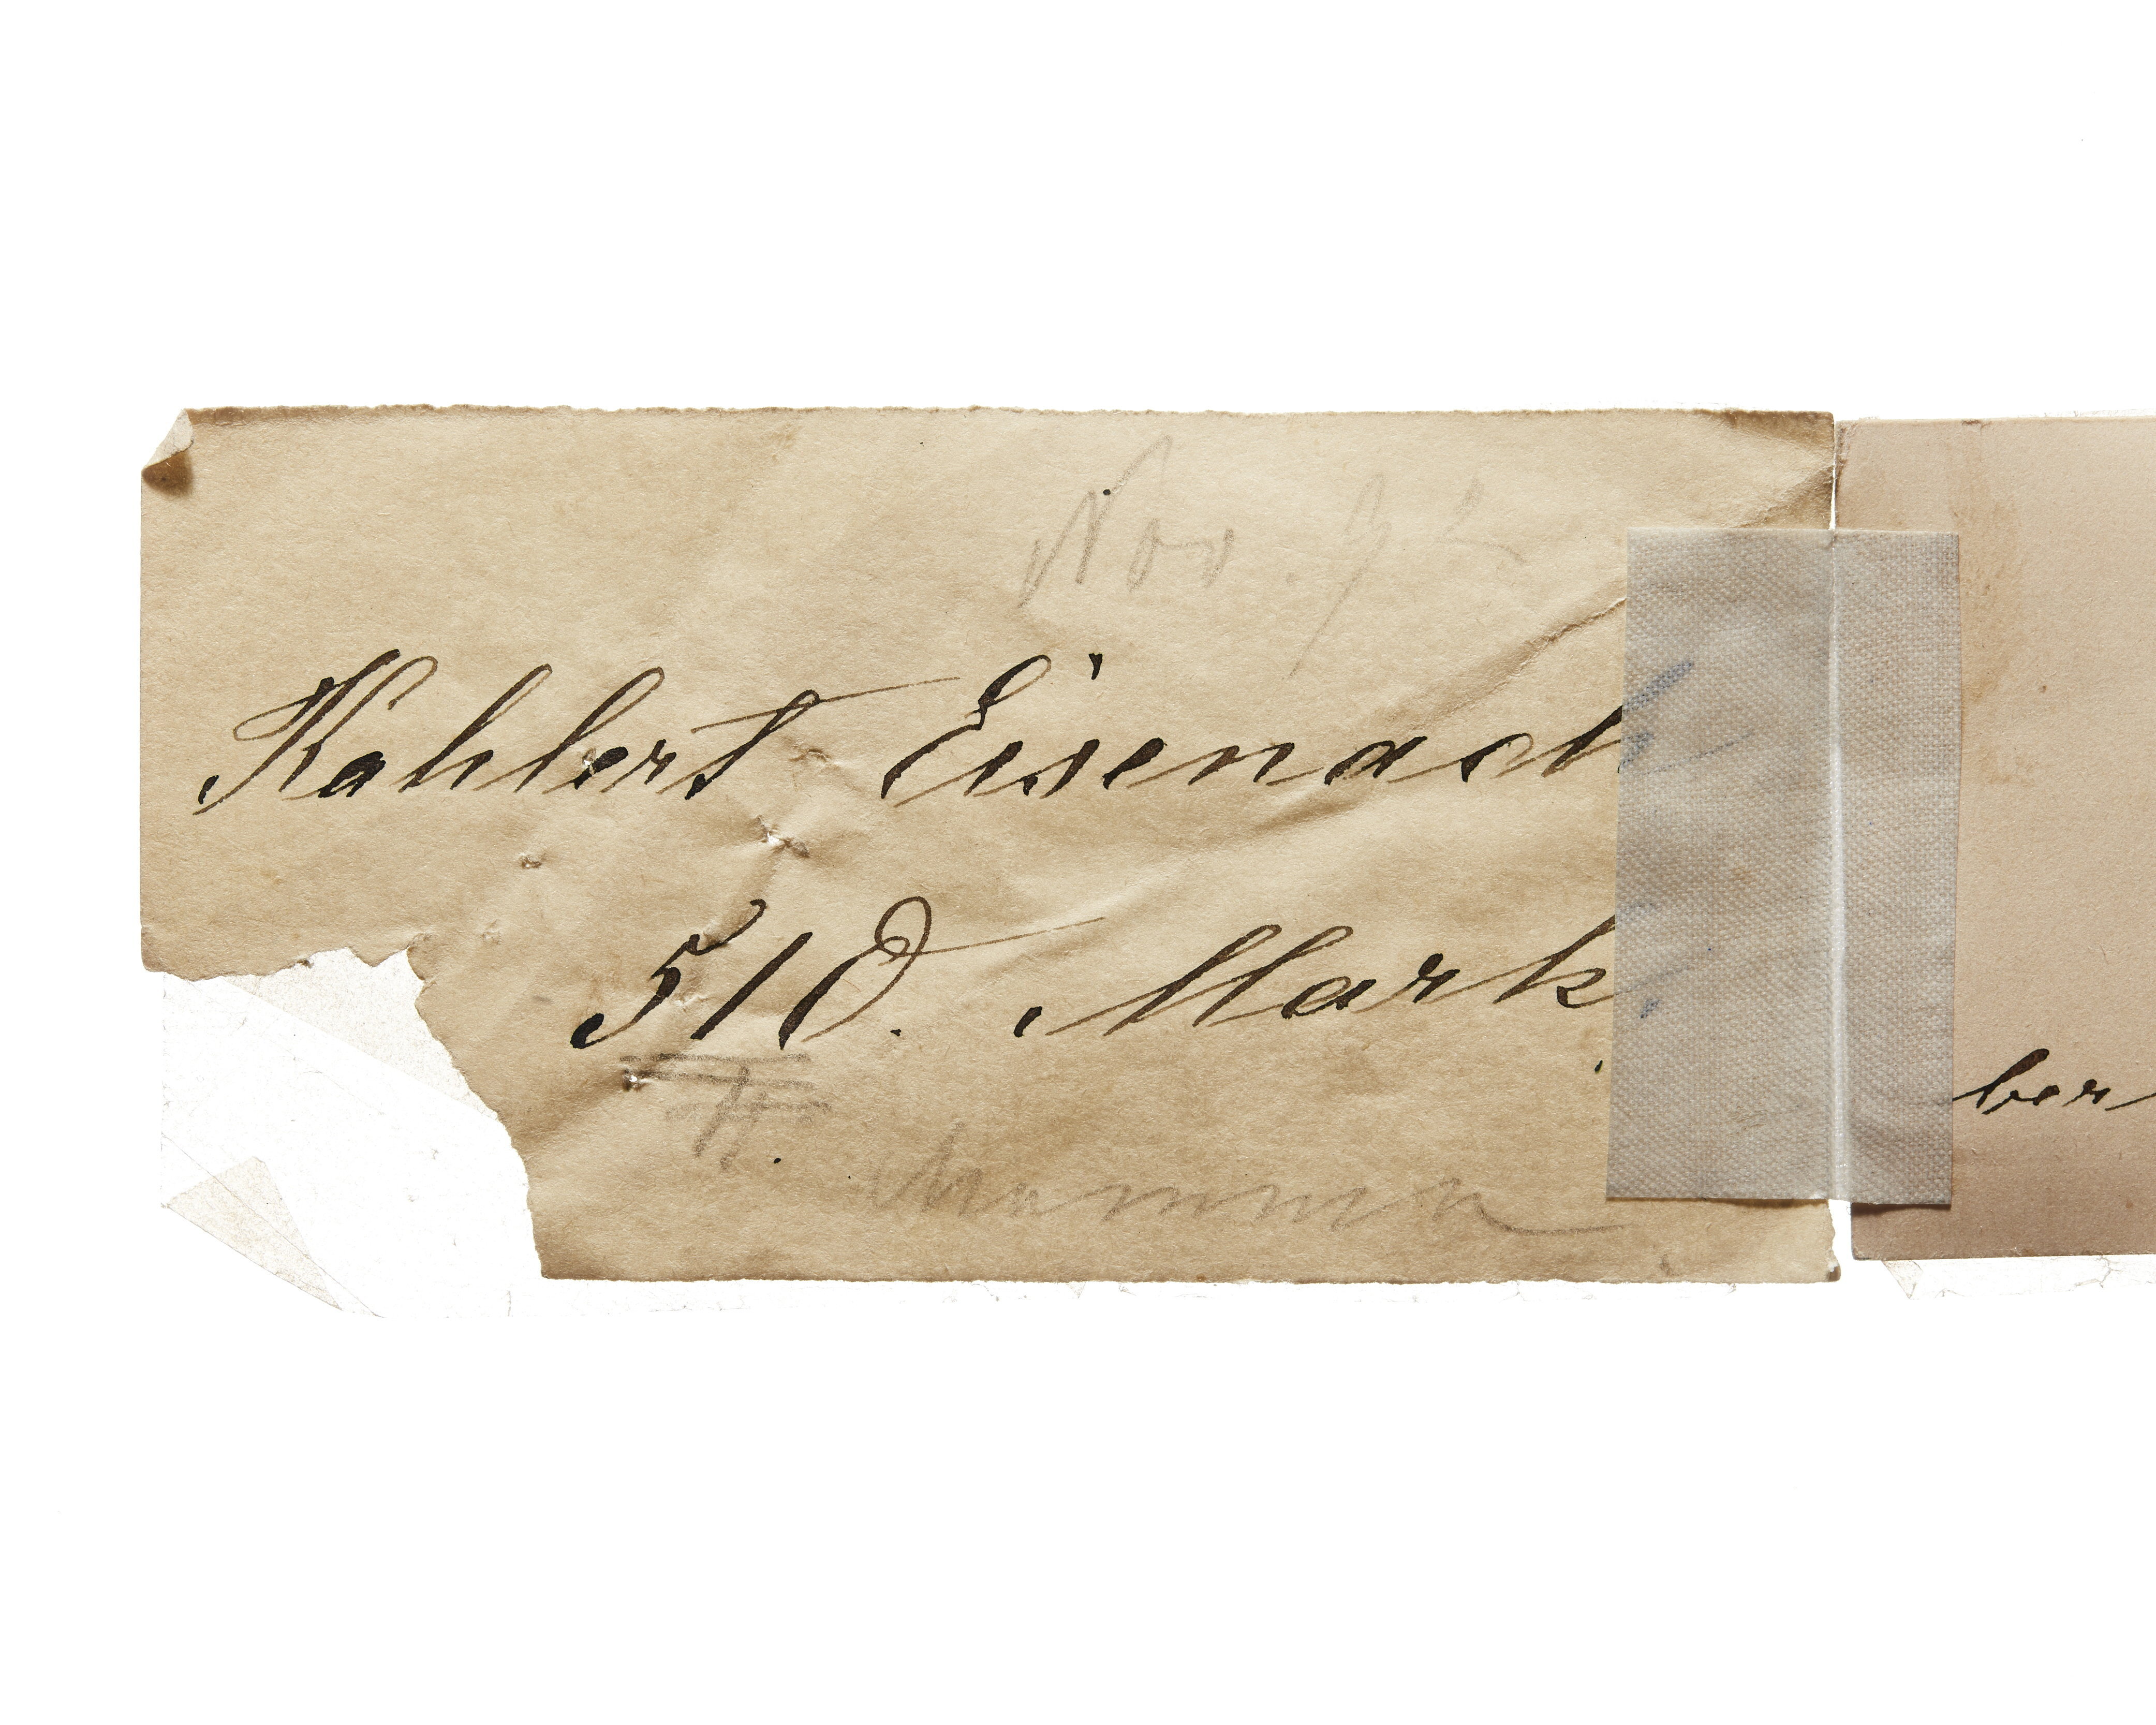 Nov. 92
Kahlert Eisenach
510. Mark.
ber